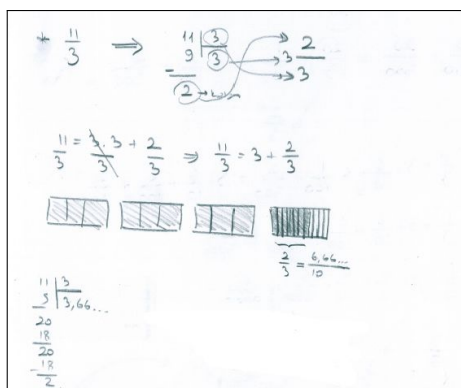 + 11/3 ⇒ 11 | 3
9 | 3
−
2 →
3 2/3
11/3 = 3·3/3 + 2/3 ⇒ 11/3 = 3 + 2/3
2/3 = 6,66.../10
11 | 3
9 | 3,66...
−
20
18
20
−18
2